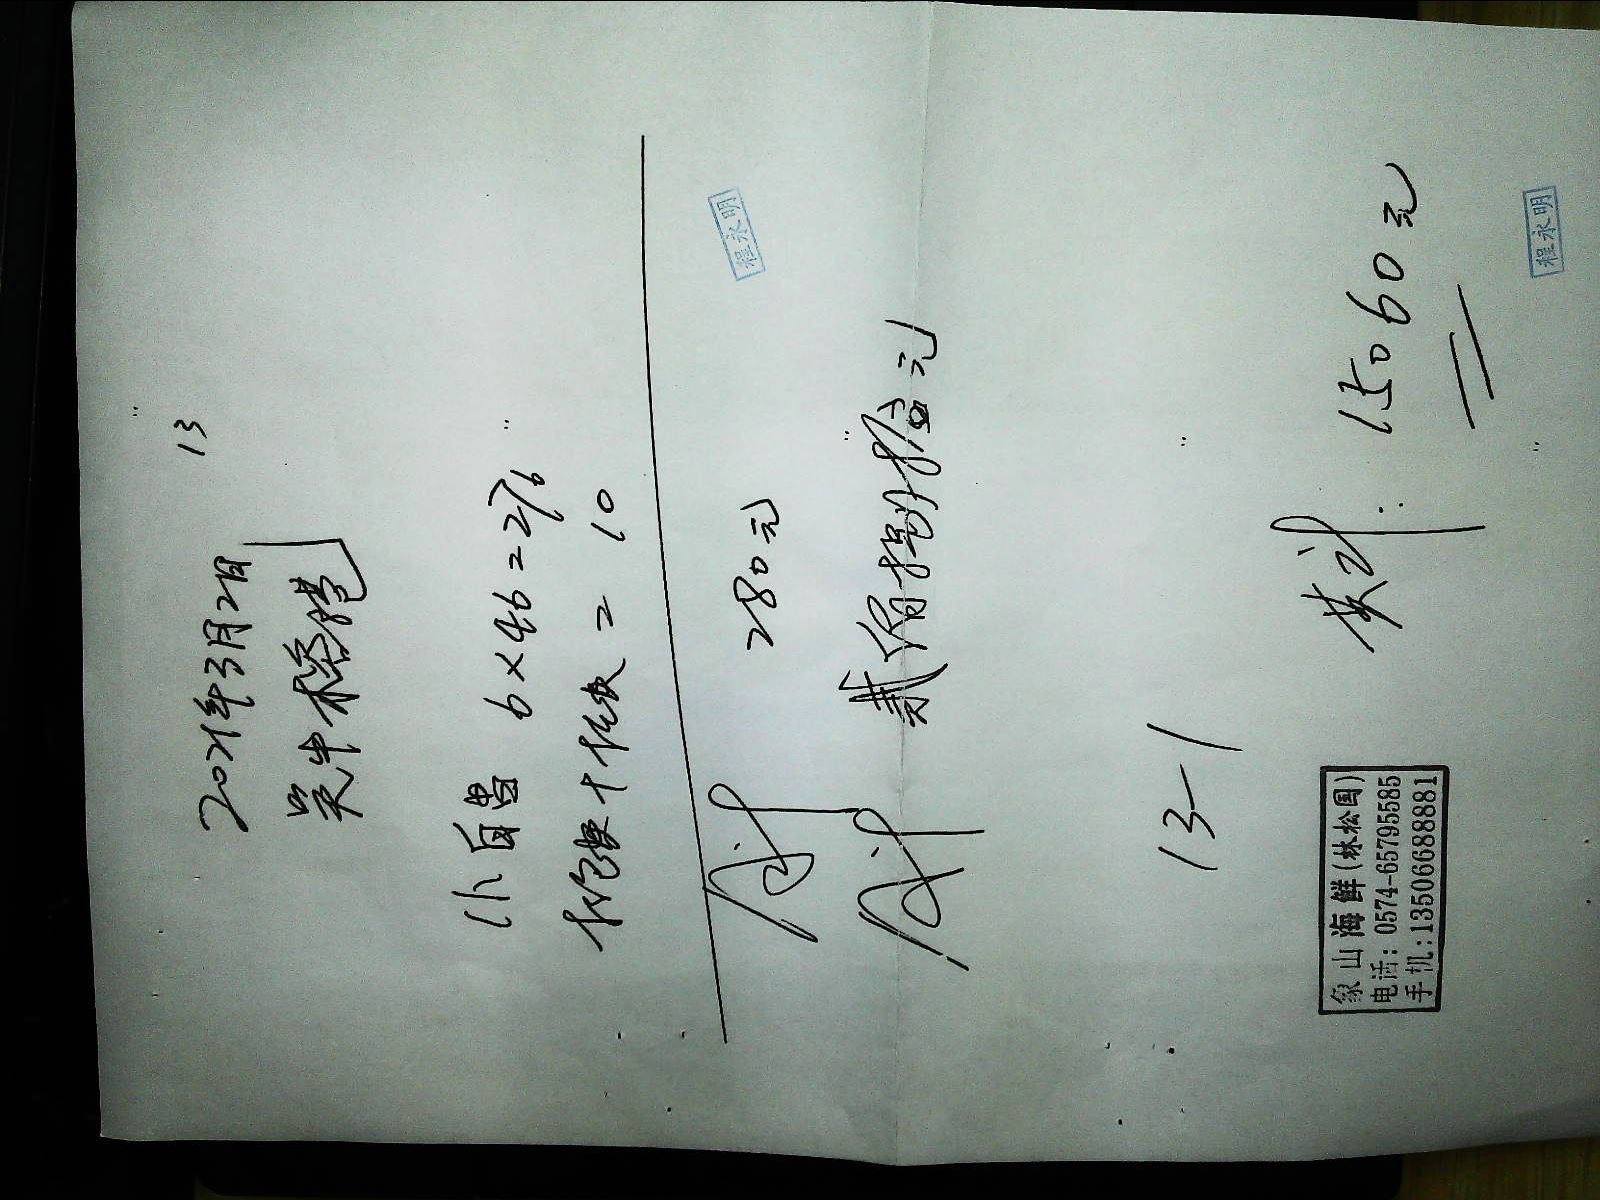 13
2021年3月2日
吴中
小白 6×46=276
= 10
合计 280元
程永明
合计 贰佰捌拾 元
13-1
共计: 15060元
象山海鲜(林松国)
电话:0574-65795585
手机:13506688881
程永明